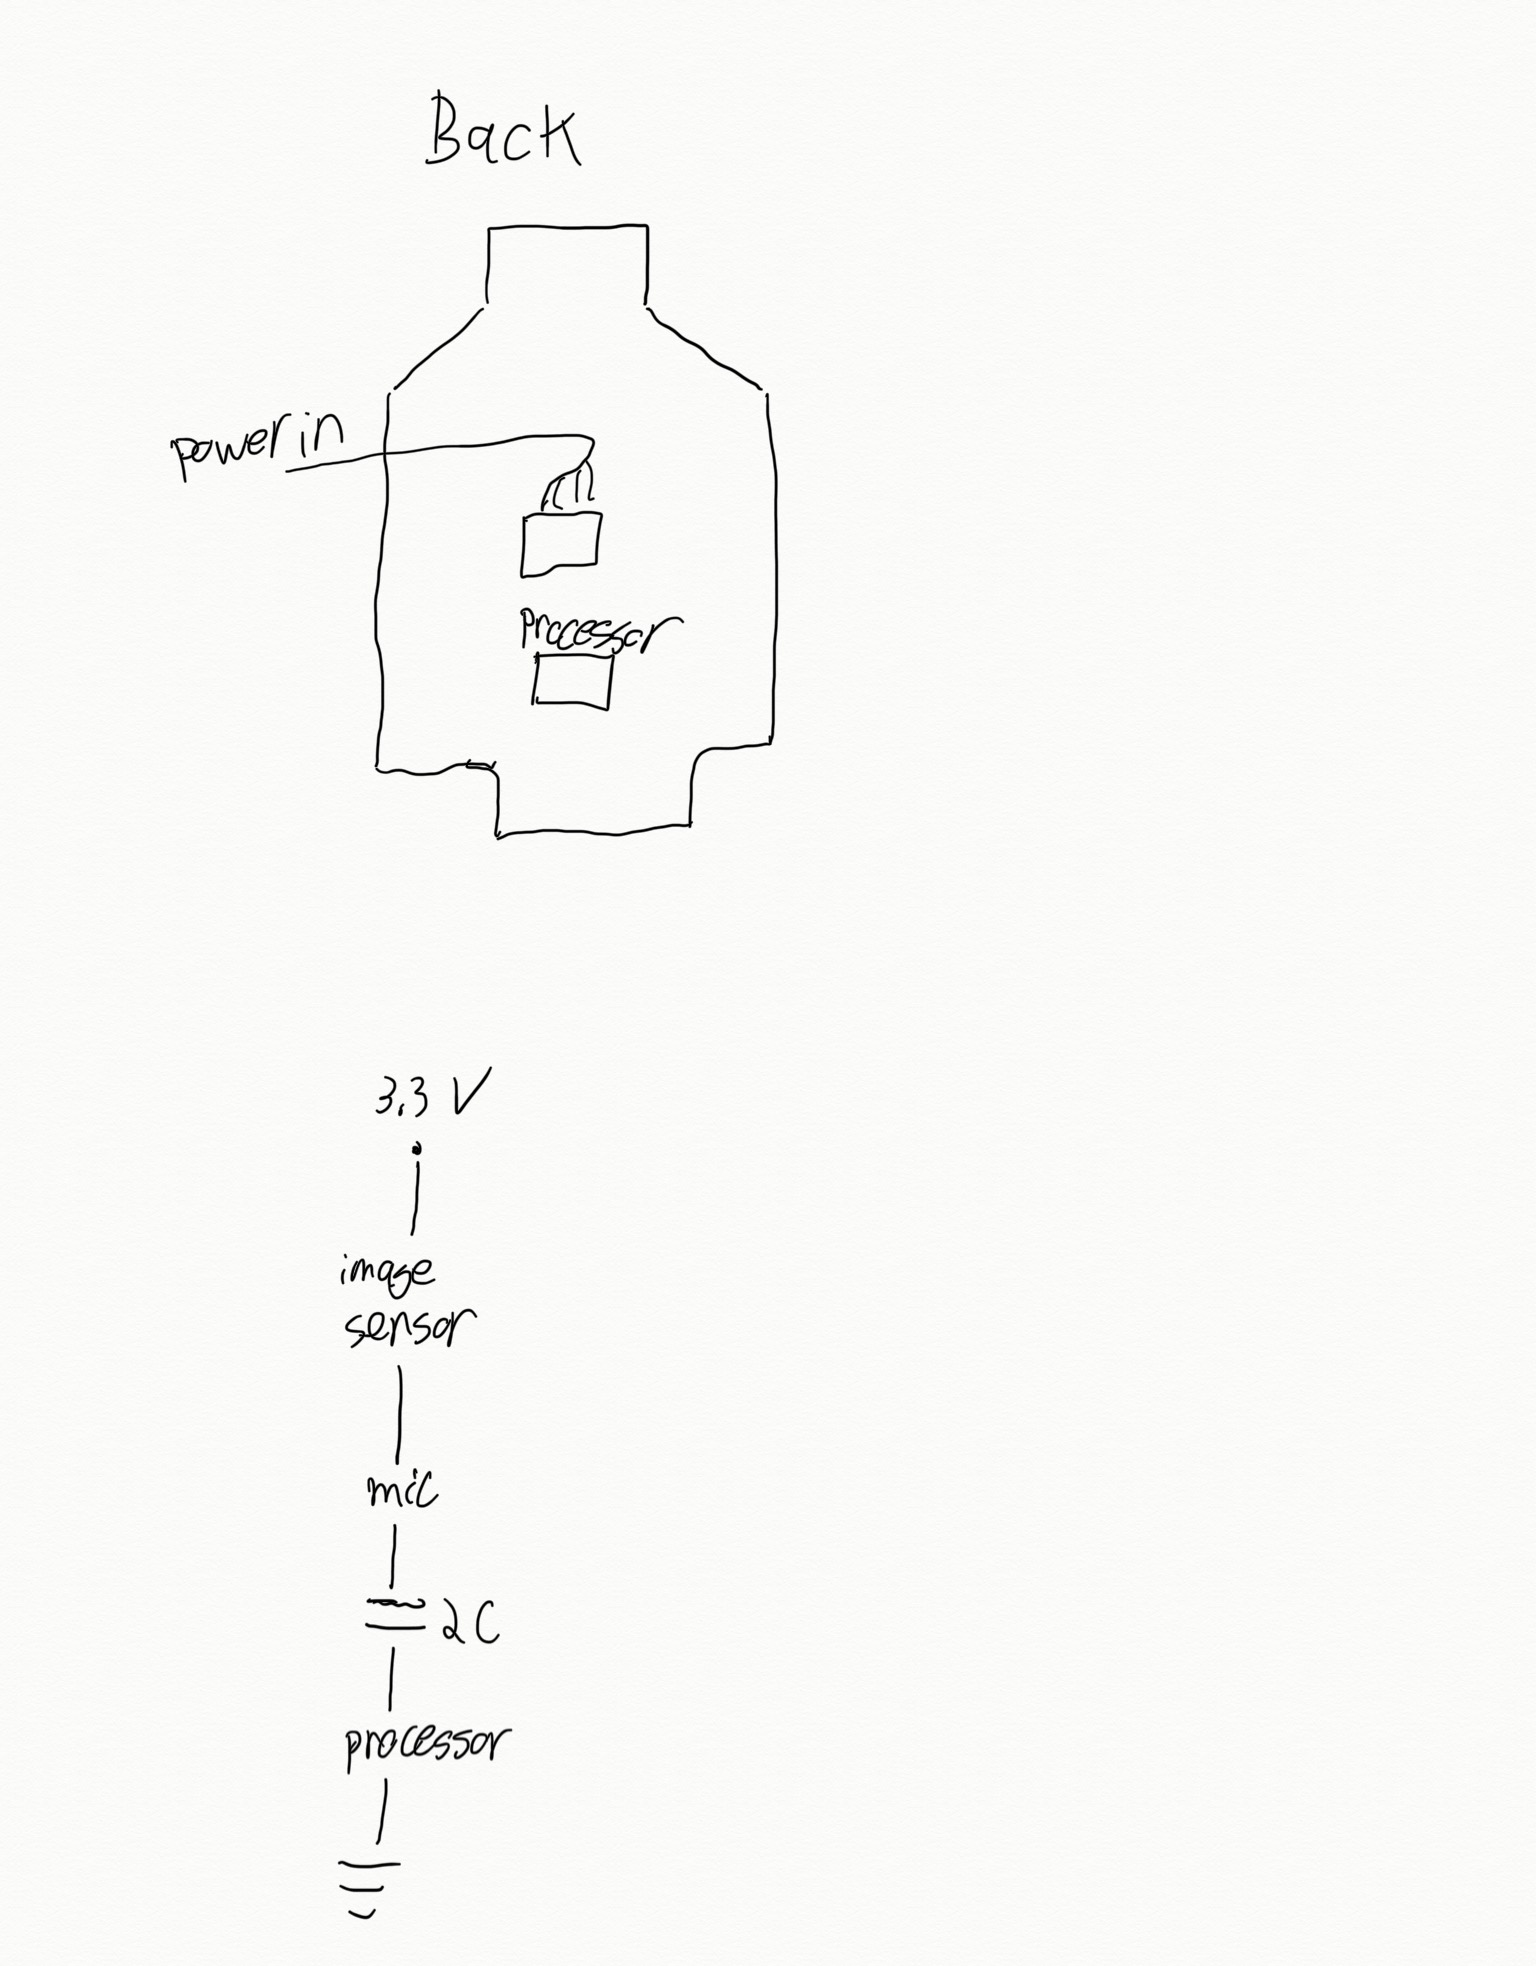 Back
power in
processor
3.3 V
image
sensor
mic
2C
processor